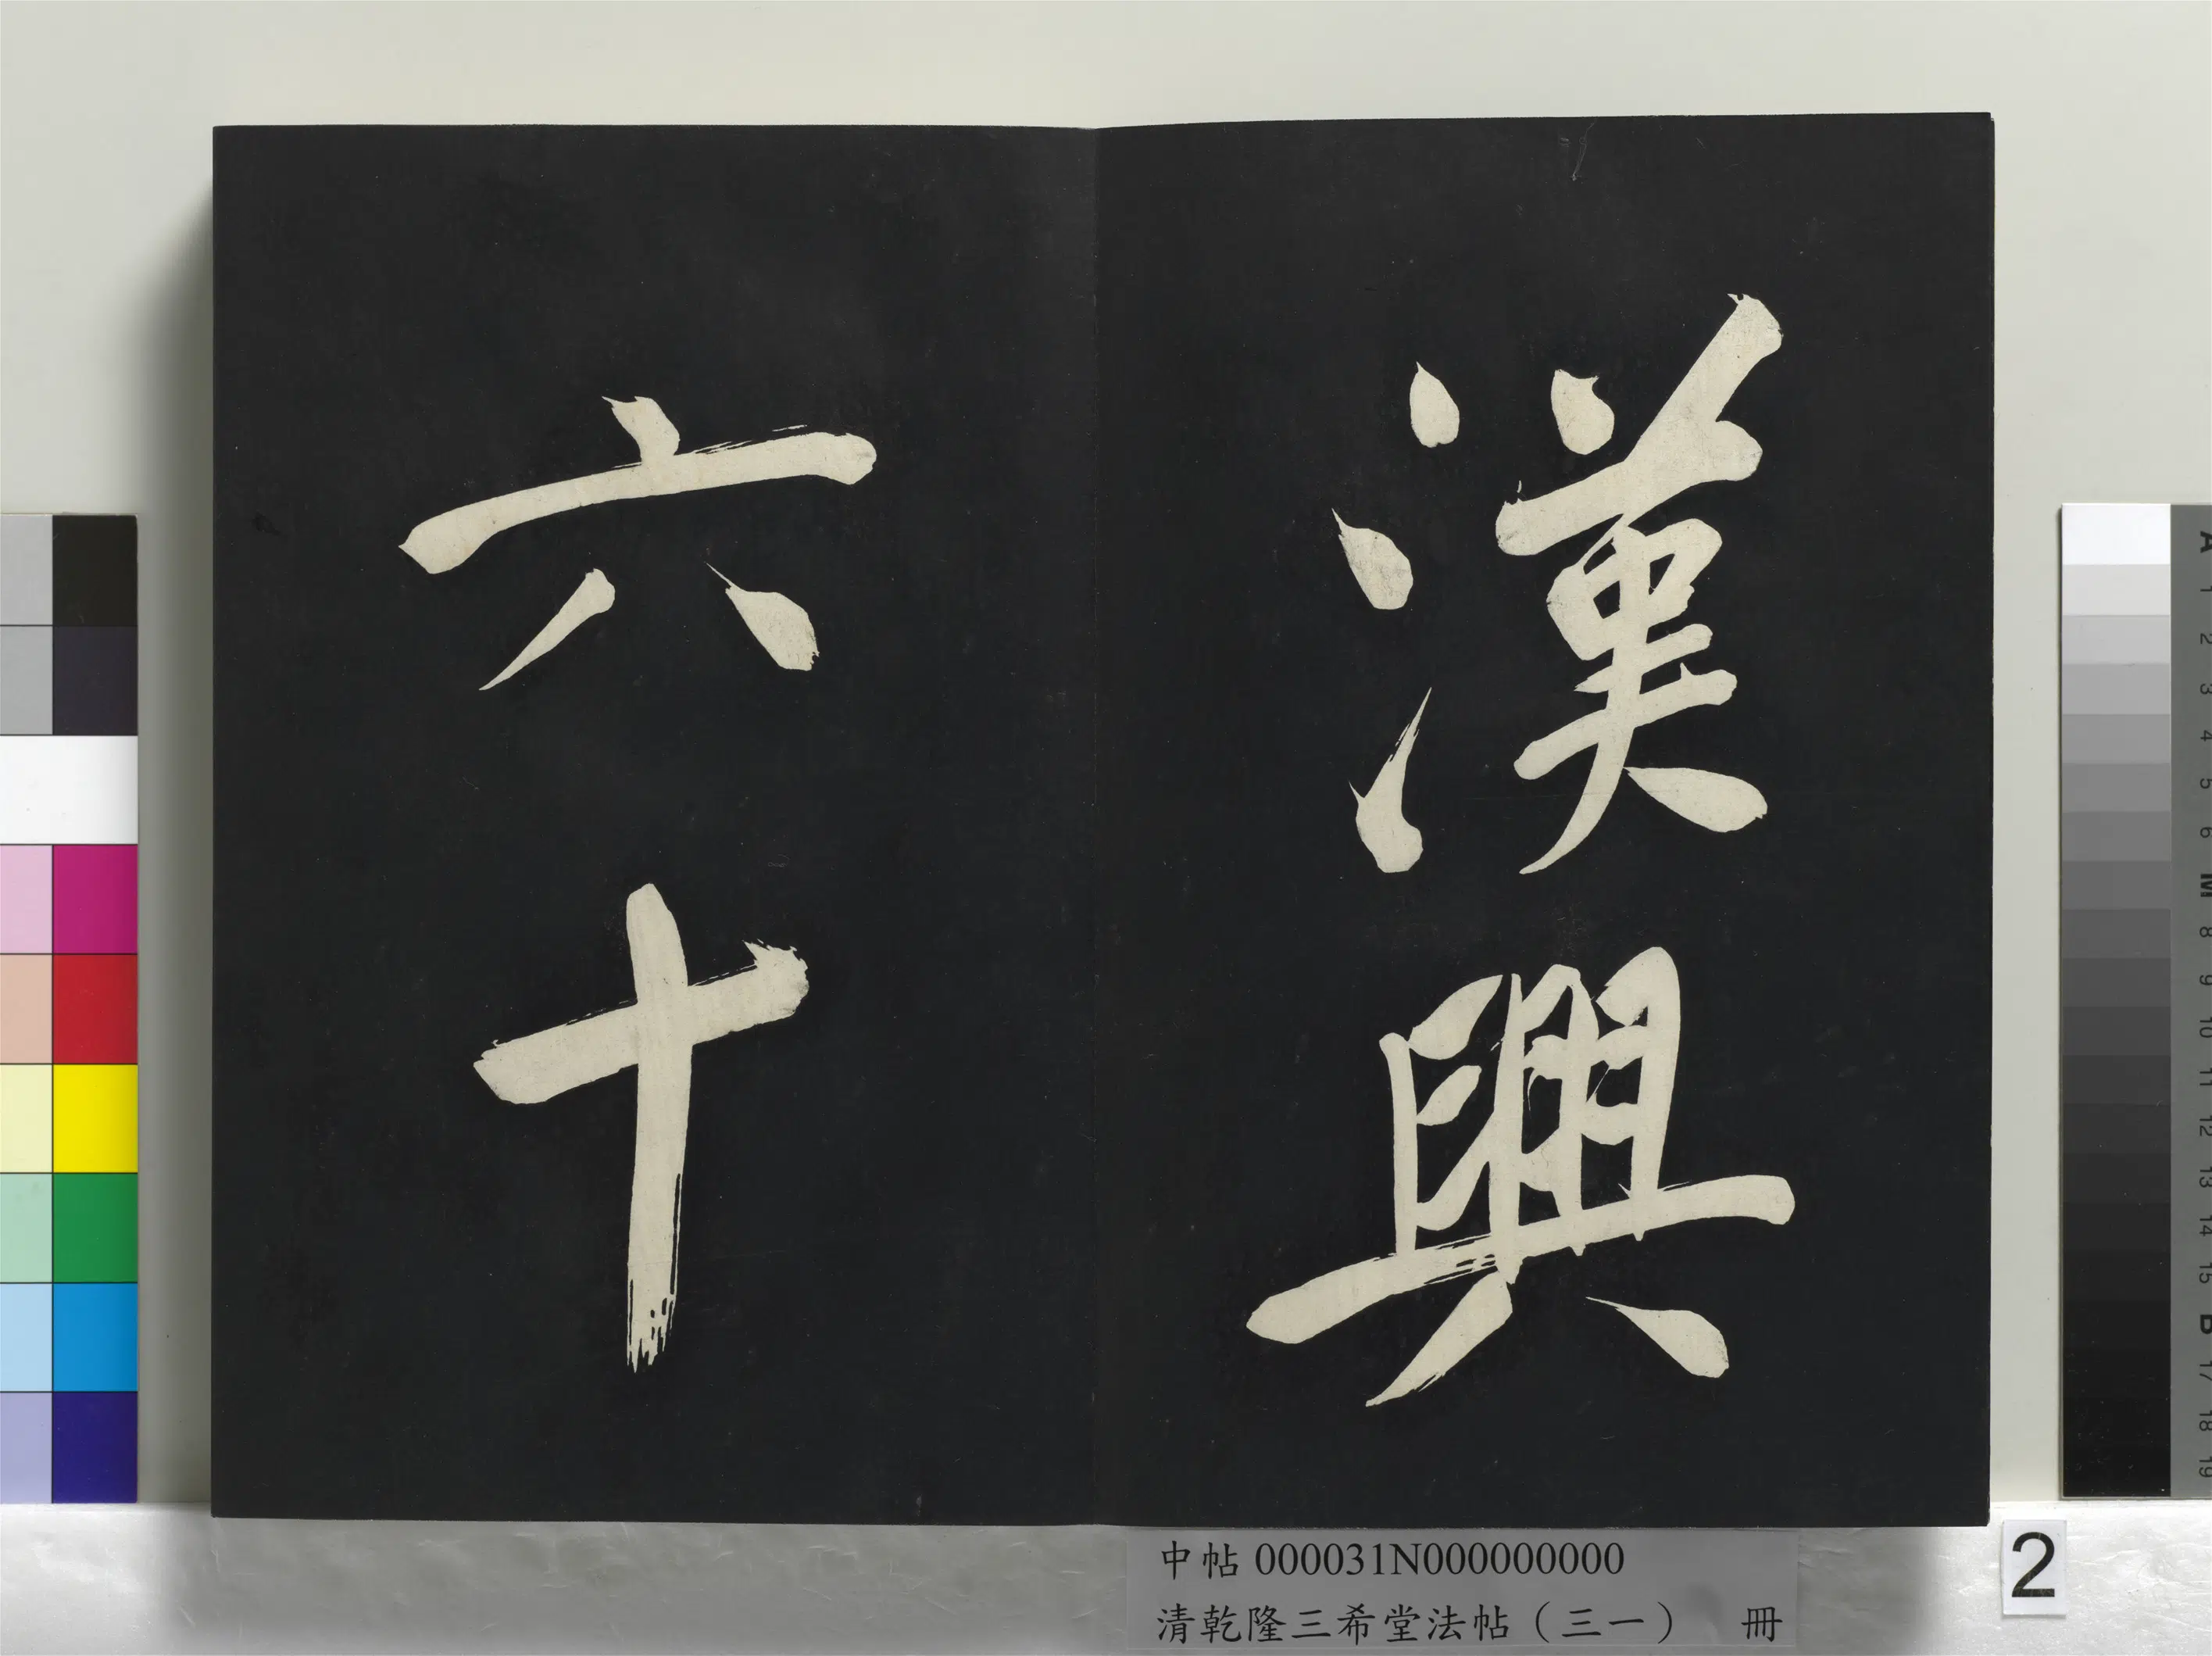 漢興
六十
中帖 000031N000000000
清乾隆三希堂法帖（三一） 冊
2
A
1
2
3
4
5
6
M
8
9
10
11
12
13
14
15
B
17
18
19